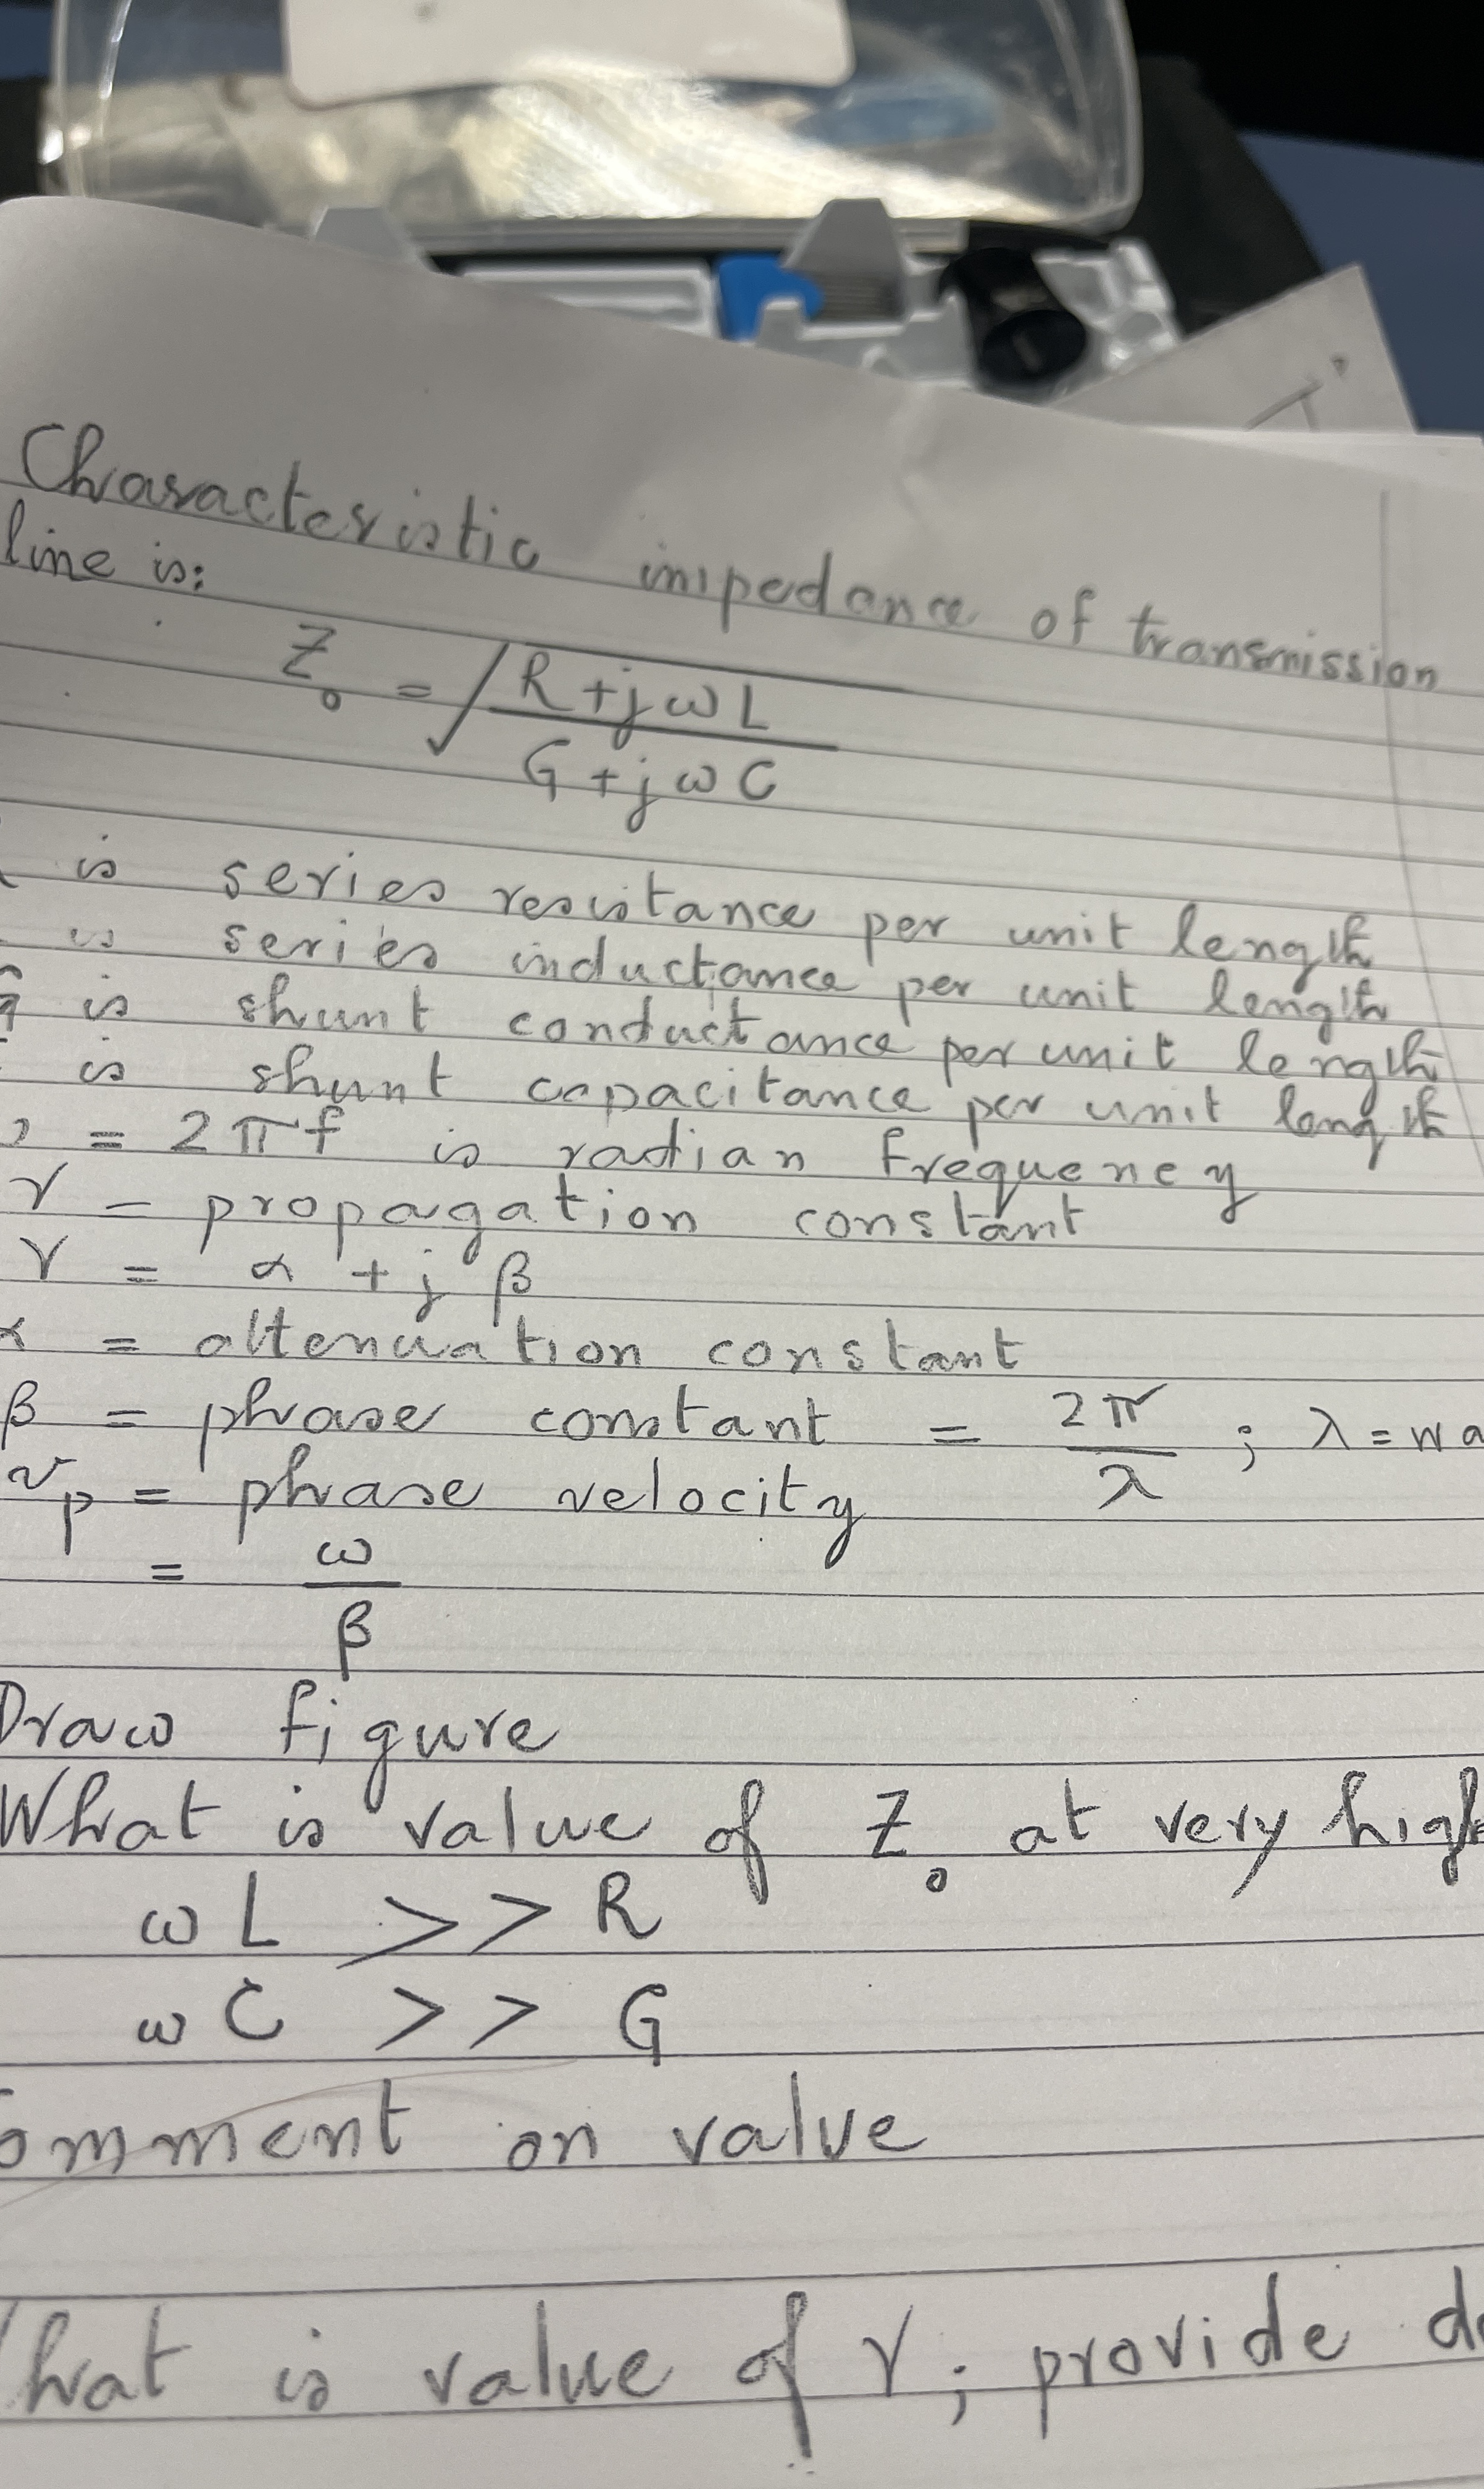 Characteristic impedance of transmission
line is:
Z₀ = √(R+jωL
G+jωC)
is series resistance per unit length
is series inductance per unit length
G is shunt conductance per unit length
is shunt capacitance per unit length
= 2πf is radian frequency
γ = propagation constant
γ = α + jβ
α = attenuation constant
β = phase constant = 2π/λ ; λ = wa
vₚ = phase velocity
= ω/β
Draw figure
What is value of Z₀ at very high
ωL >> R
ωC >> G
omment on value
hat is value of γ; provide de